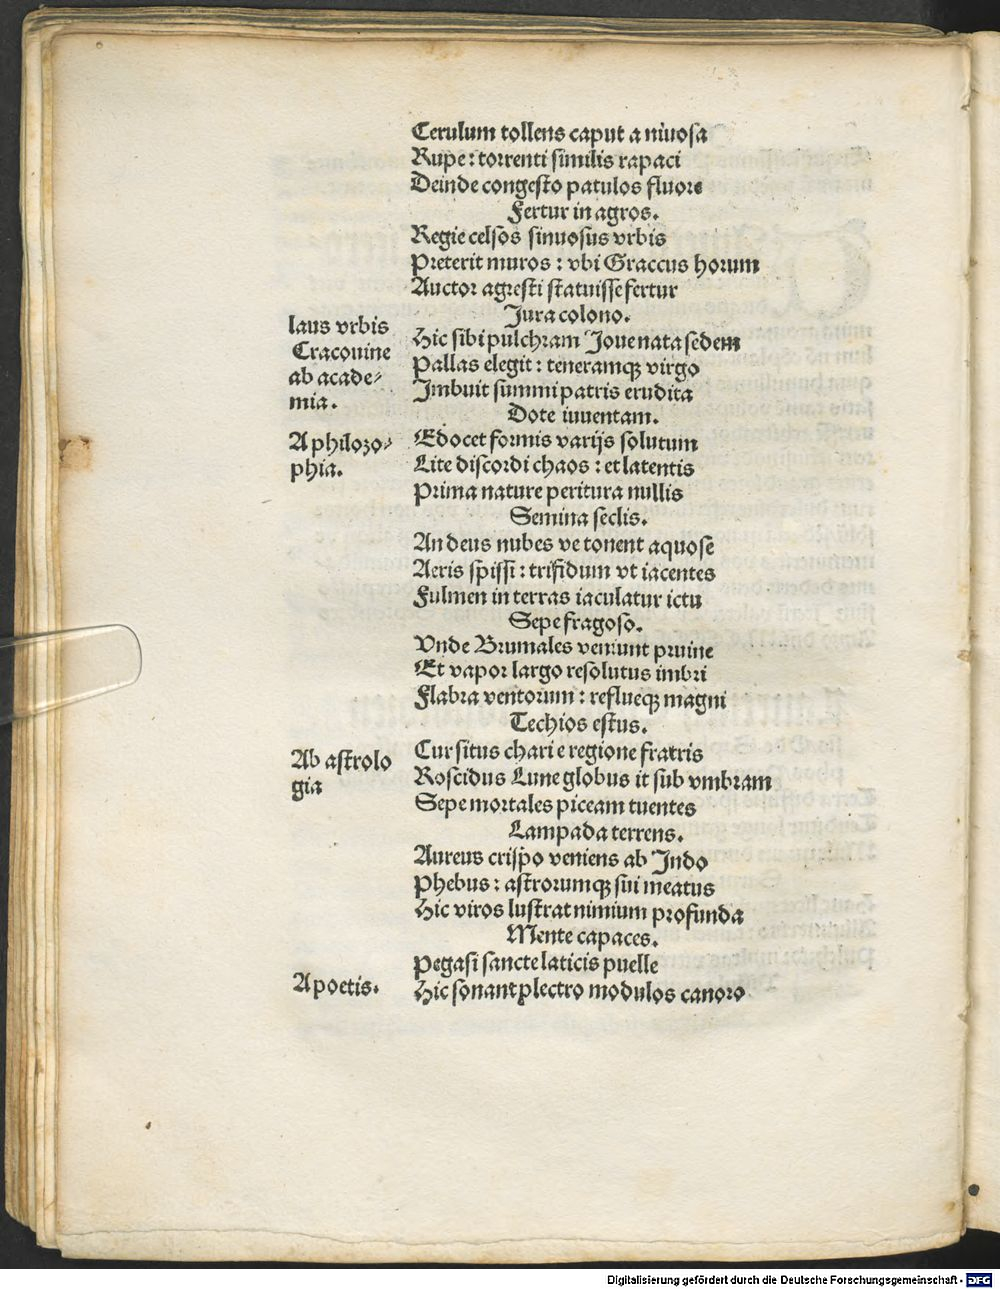 Cerulum tollens caput a niuosa
Rupe : torrenti similis rapaci
Deinde congesto patulos fluore
Fertur in agros.
Regie celsos sinuosus vrbis
Preterit muros : vbi Graccus horum
Auctor agresti statuisse fertur
Jura colono.
laus vrbis
Cracouine
ab acade⸗
mia.
Hic sibi pulchram Joue nata sedem
Pallas elegit : teneramqꝫ virgo
Imbuit summi patris erudita
Dote iuuentam.
A philozo⸗
phia.
Edocet formis varijs solutum
Lite discordi chaos : et latentis
Prima nature peritura nullis
Semina seclis.
An deus nubes ve tonent aquose
Aeris spissi : trifidum vt iacentes
Fulmen in terras iaculatur ictu
Sepe fragoso.
Vnde Brumales veniunt pruine
Et vapor largo resolutus imbri
Flabra ventorum : reflueqꝫ magni
Techios estus.
Ab astrolo
gia
Cur situs chari e regione fratris
Roscidus Lune globus it sub vmbram
Sepe mortales piceam tuentes
Lampada terrens.
Aureus crispo veniens ab Indo
Phebus : astrorumqꝫ sui meatus
Hic viros lustrat nimium profunda
Mente capaces.
A poetis.
Pegasi sancte laticis puelle
Hic sonant plectro modulos canoro
Digitalisierung gefördert durch die Deutsche Forschungsgemeinschaft - DFG